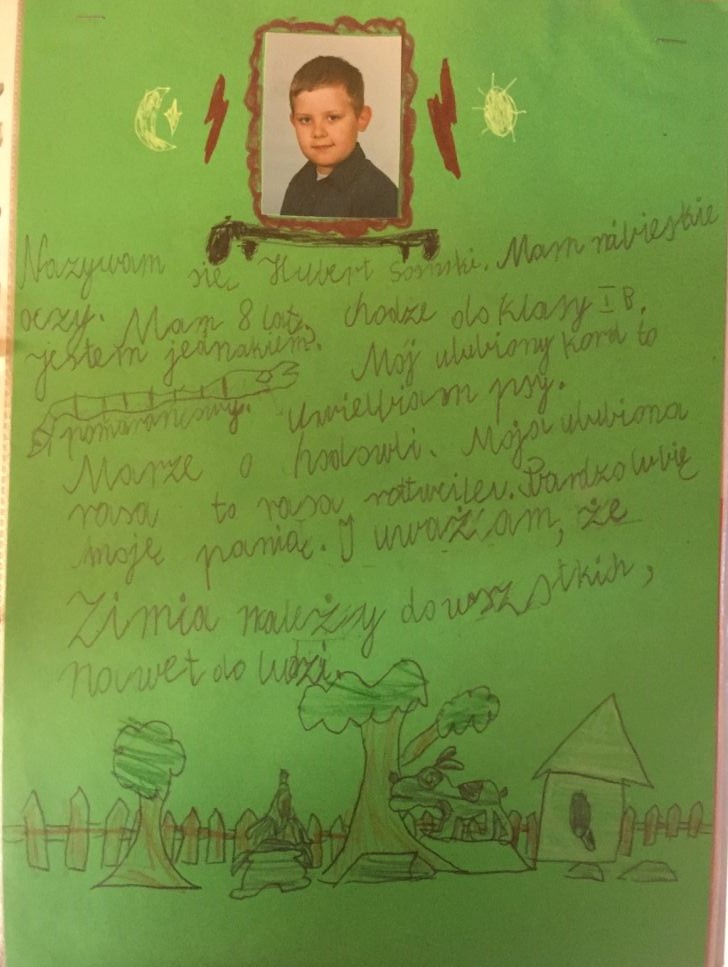 Nazywam się Hubert Sosnski. Mam niebieskie
oczy. Mam 8 lat, chodze do klasy I B.
jestem jednakiem.
Mój ulubiony kord to
pomarańcowy. Uwielbiam psy.
Marze o hodowli. Moja ulubiona
rasa to rasa rottweiler. Bardzo lubię
moję panią. I uważam, że
Zimia należy do wszstkich,
nawet do ludzi.